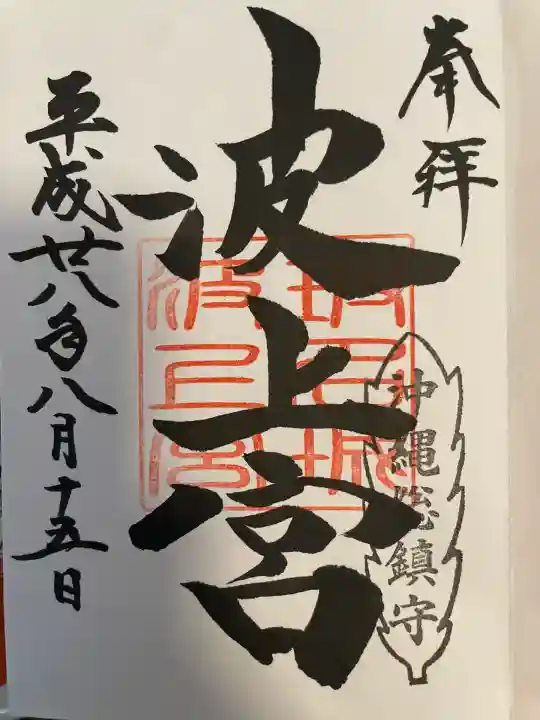 奉拝
沖縄総鎮守
波上宮
平成廿八年八月十五日